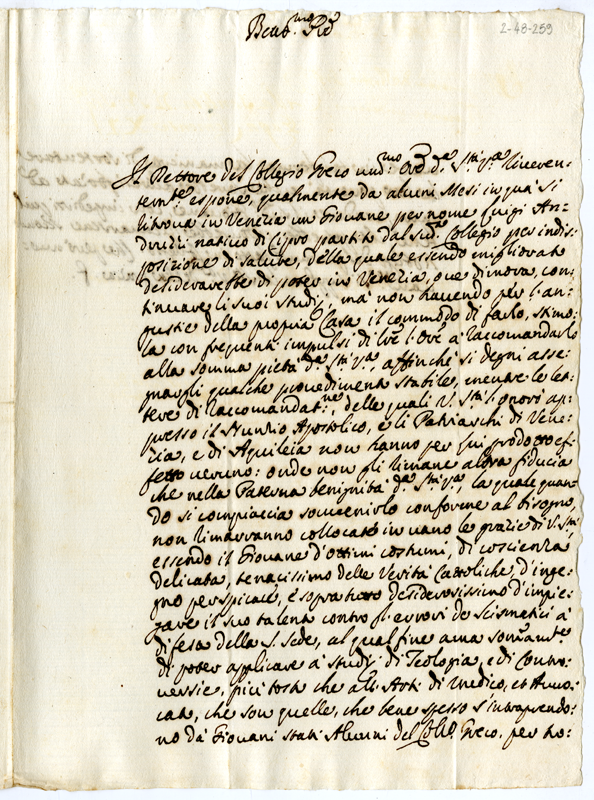 Beat.mo Pre
2-48-259
Il Rettore del Collegio Greco um.mo Ore de S.tà V.a riveren:
tem.te espone, qualmente da alcuni Mesi in quà si
ritrova in Venezia un Giovane per nome Luigi An=
druzzi nativo di Cipro partito dal sud.o Collegio per indis:
posizione di salute, della quale essendo migliorato
desidererebbe di poter in Venezia, ove dimora, con:
tinuare li suoi studj, mà non havendo per l'an:
gustie della propria Casa il commodo di farlo, stimo:
la con frequenti impulsi di lre l'Ore à raccomandarlo
alla somma pietà de S.tà V.a, affinche si degni asse:
gnargli qualche provedimento stabile, mentre le let:
tere di raccomandat.ne, delle quali V. S.tà l'onorò ap:
presso il Nunzio Apostolico, e li Patriarchi di Vene:
zia, e di Aquileia non hanno per lui prodotto ef:
fetto veruno: onde non gli rimane altra fiducia
che nella Paterna benignità de S.tà V.a, la quale quan:
do si compiaccia sovvenirlo conforme al bisogno,
non rimarranno collocate in vano le grazie di V. S.tà,
essendo il Giovane d'ottimi costumi, di coscienza
delicata, tenacissimo delle Verità Cattoliche d'inge:
gno perspicace, e sopra tutto desiderosissimo d'impie:
gare il suo talento contro gl'errori de Scismatici à
difesa della S. Sede, al qual fine ama som.am.te
di poter applicare à studj di Teologia, e di Contro:
versie, più tosto che all'Arti di Medico, et Avvo:
cato, che son quelle, che bene spesso s'intraprendo:
no dà Giovani stati Alunni del Coll.o Greco, per ho: